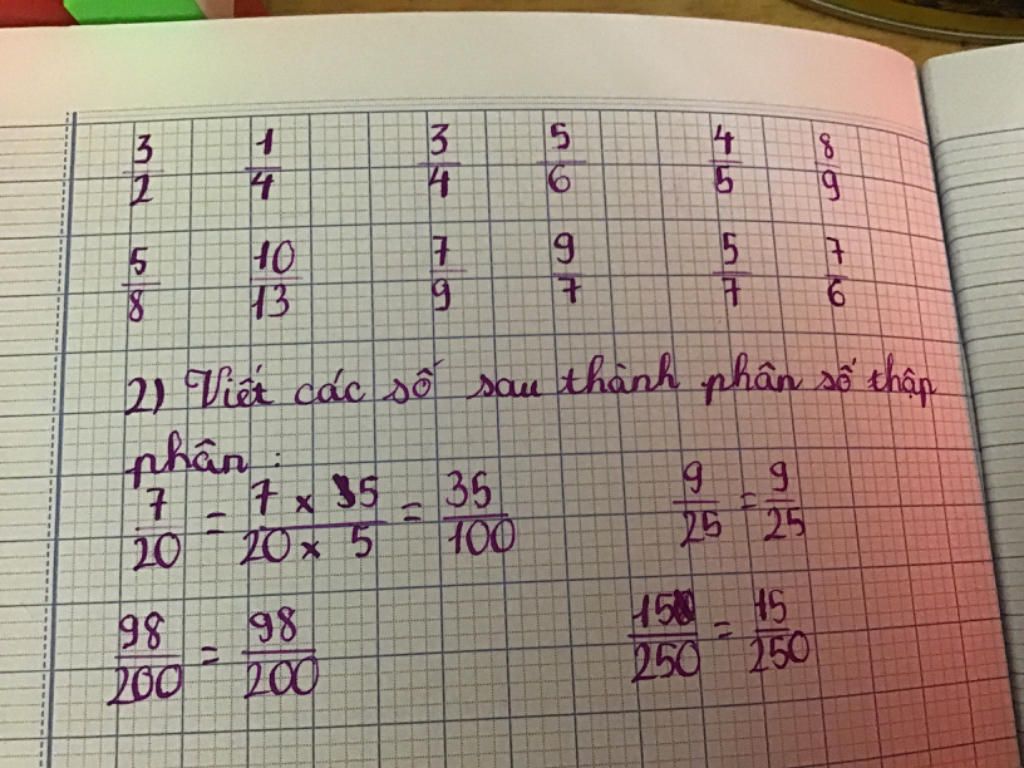 3/2 1/4 3/4 5/6 4/5 8/9
5/8 10/13 7/9 9/7 5/7 7/6
2) Viết các số sau thành phân số thập
phân :
7/20 = 7 x 5/20 x 5 = 35/100 9/25 = 9/25
98/200 = 98/200 15/250 = 15/250